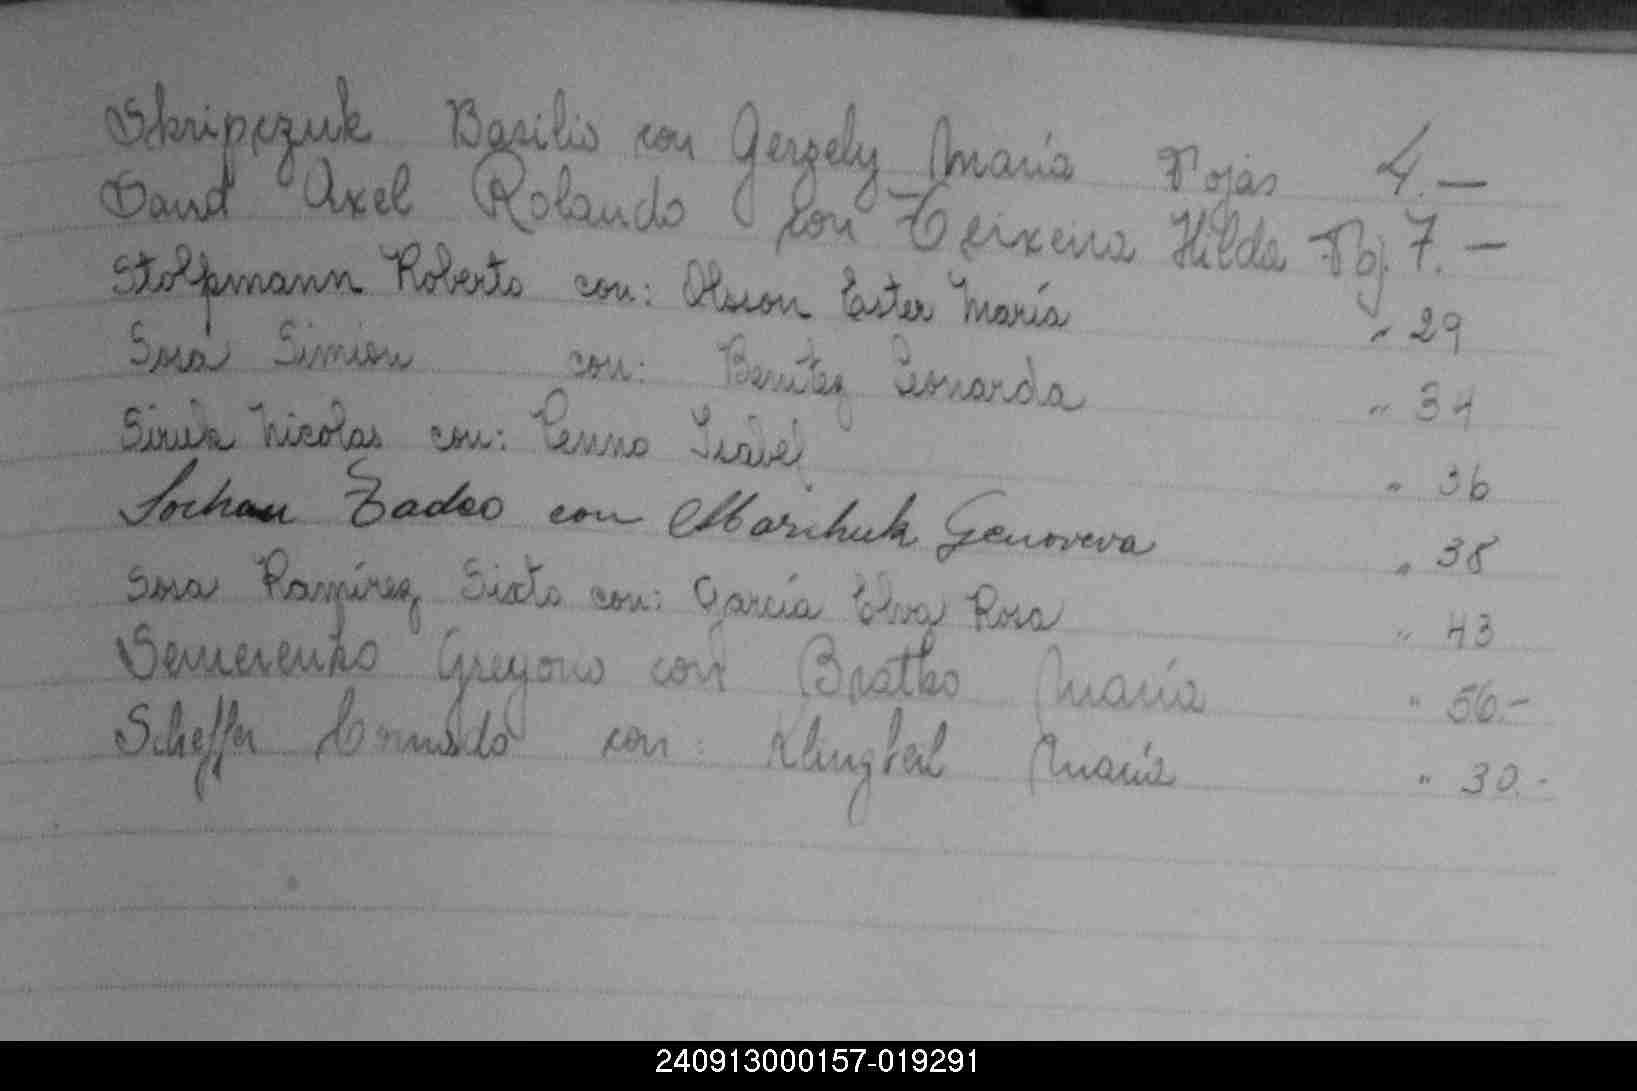 Skripczuk Basilio con Gerzely María Fojas 4.—
Sand Axel Rolando con Teixeira Hilda Foj. 7.—
Stolpmann Roberto con: Olsson Ester María " 29
Sosa Simion con: Benítez Leonarda " 34
Nicolas con: Penno Isabel " 36
Sochau Tadeo con Marchuk Genoveva " 38
Sosa Ramírez Sixto con: García Elva Rosa " 43
Semenenko Gregorio con Bratko María " 56.-
Scheffer con: Klingbeil María " 30.-
240913000157-019291